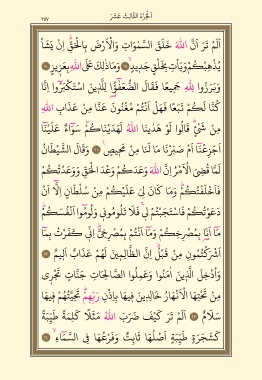 الجزء الثالث عشر
٢٥٧
اَلَمْ تَرَ اَنَّ اللّٰهَ خَلَقَ السَّمٰوَاتِ وَالْاَرْضَ بِالْحَقِّ اِنْ يَشَأْ
يُذْهِبْكُمْ وَيَأْتِ بِخَلْقٍ جَدِيدٍ ۝ وَمَا ذٰلِكَ عَلَى اللّٰهِ بِعَزِيزٍ ۝
وَبَرَزُوا لِلّٰهِ جَمِيعًا فَقَالَ الضُّعَفٰٓؤُا لِلَّذِينَ اسْتَكْبَرُٓوا اِنَّا
كُنَّا لَكُمْ تَبَعًا فَهَلْ اَنْتُمْ مُغْنُونَ عَنَّا مِنْ عَذَابِ اللّٰهِ
مِنْ شَيْءٍ قَالُوا لَوْ هَدٰينَا اللّٰهُ لَهَدَيْنَاكُمْ سَوَٓاءٌ عَلَيْنَٓا
اَجَزِعْنَٓا اَمْ صَبَرْنَا مَا لَنَا مِنْ مَحِيصٍ ۝ وَقَالَ الشَّيْطَانُ
لَمَّا قُضِيَ الْاَمْرُ اِنَّ اللّٰهَ وَعَدَكُمْ وَعْدَ الْحَقِّ وَوَعَدْتُكُمْ
فَاَخْلَفْتُكُمْ وَمَا كَانَ لِيَ عَلَيْكُمْ مِنْ سُلْطَانٍ اِلَّٓا اَنْ
دَعَوْتُكُمْ فَاسْتَجَبْتُمْ لِي فَلَا تَلُومُونِي وَلُومُٓوا اَنْفُسَكُمْ
مَٓا اَنَا۬ بِمُصْرِخِكُمْ وَمَٓا اَنْتُمْ بِمُصْرِخِيَّ اِنِّي كَفَرْتُ بِمَٓا
اَشْرَكْتُمُونِ مِنْ قَبْلُ اِنَّ الظَّالِمِينَ لَهُمْ عَذَابٌ اَلِيمٌ ۝
وَاُدْخِلَ الَّذِينَ اٰمَنُوا وَعَمِلُوا الصَّالِحَاتِ جَنَّاتٍ تَجْرِي
مِنْ تَحْتِهَا الْاَنْهَارُ خَالِدِينَ فِيهَا بِاِذْنِ رَبِّهِمْ تَحِيَّتُهُمْ فِيهَا
سَلَامٌ ۝ اَلَمْ تَرَ كَيْفَ ضَرَبَ اللّٰهُ مَثَلًا كَلِمَةً طَيِّبَةً
كَشَجَرَةٍ طَيِّبَةٍ اَصْلُهَا ثَابِتٌ وَفَرْعُهَا فِي السَّمَٓاءِ ۝